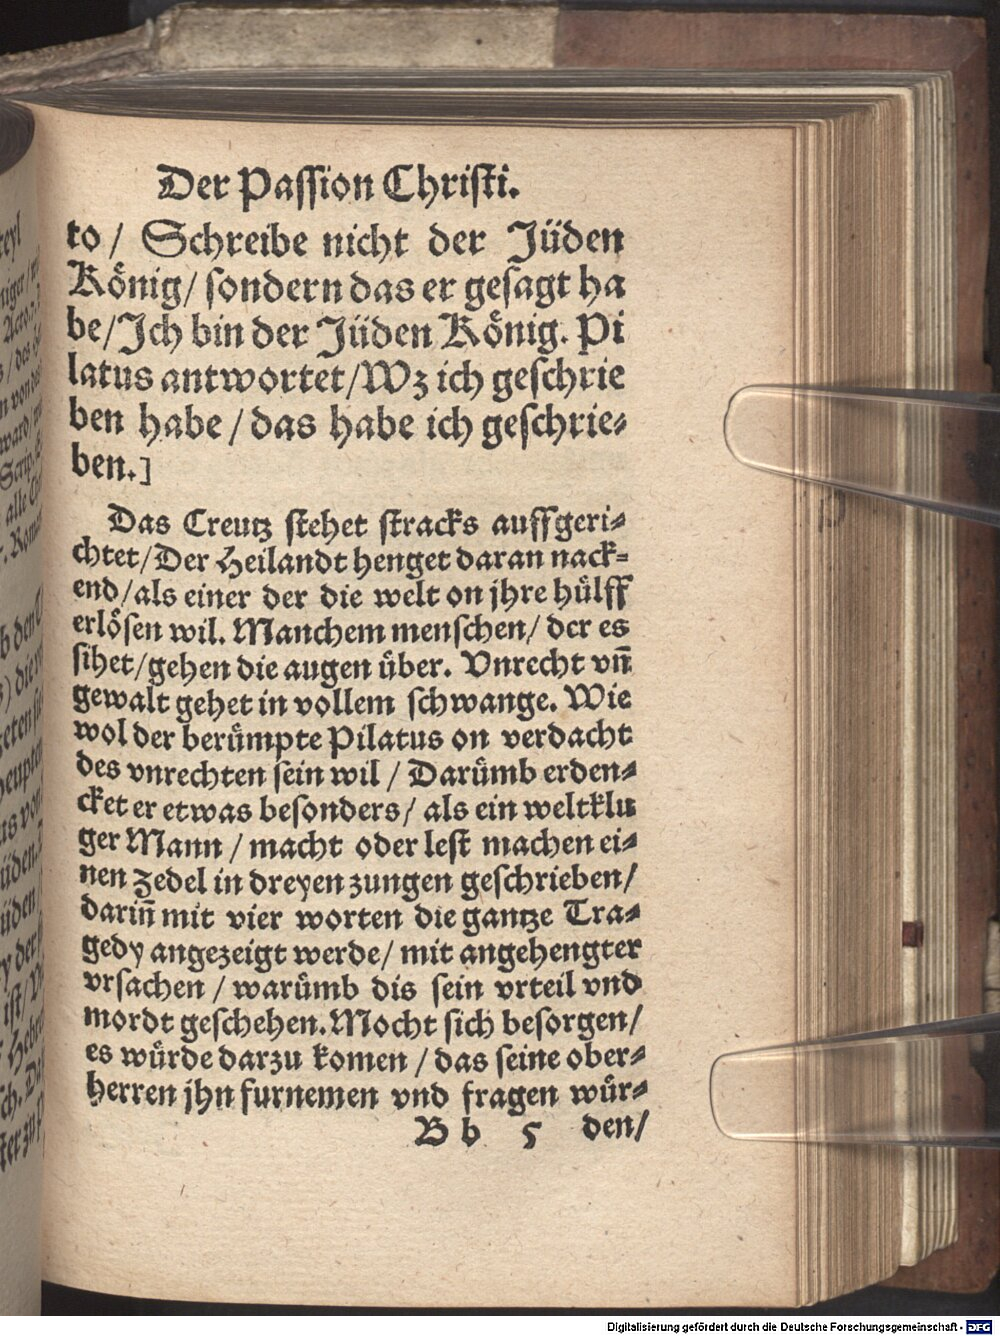 Der Passion Christi.
to/ Schreibe nicht der Jüden
Koͤnig/ sondern das er gesagt ha
be/Ich bin der Jüden Koͤnig. Pi
latus antwortet/Wz ich geschrie
ben habe/das habe ich geschrie⸗
ben.]
Das Creutz stehet stracks auffgeri⸗
chtet/Der Heilandt henget daran nack⸗
end/als einer der die welt on jhre huͤlff
erloͤsen wil. Manchem menschen/ der es
sihet/gehen die augen uͤber. Vnrecht vn̄
gewalt gehet in vollem schwange. Wie
wol der beruͤmpte Pilatus on verdacht
des vnrechten sein wil/ Daruͤmb erden⸗
cket er etwas besonders/ als ein weltklu
ger Mann/ macht oder lest machen ei⸗
nen zedel in dreyen zungen geschrieben/
darin̄ mit vier worten die gantze Tra⸗
gedy angezeigt werde/ mit angehengter
vrsachen/ waruͤmb dis sein vrteil vnd
mordt geschehen. Mocht sich besorgen/
es wuͤrde darzu komen/ das seine ober⸗
herren jhn furnemen vnd fragen wuͤr⸗
B b 5 den/
Digitalisierung gefördert durch die Deutsche Forschungsgemeinschaft - DFG